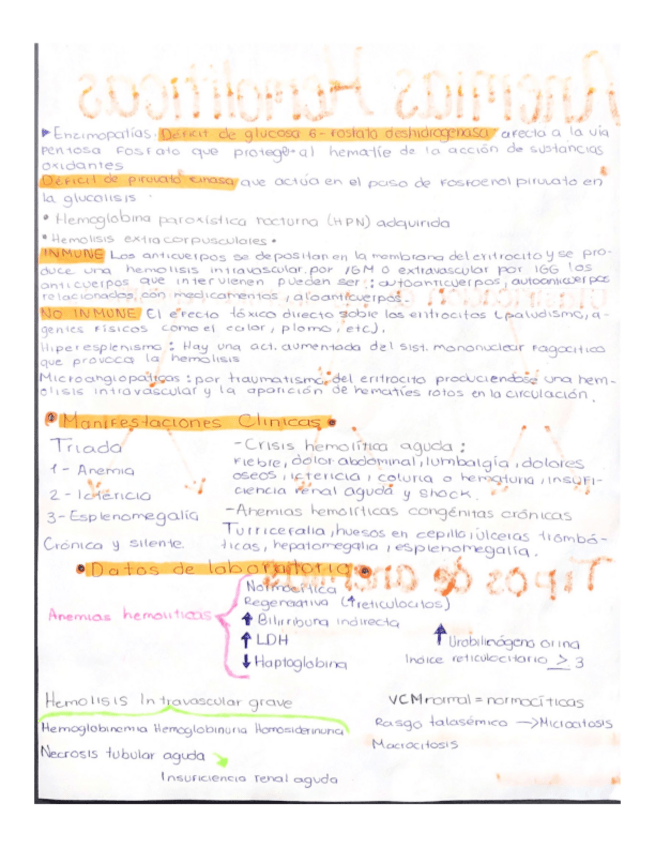 Anemias Hemolíticas
▸Enzimopatías. Déficit de glucosa 6-fosfato deshidrogenasa afecta a la vía
pentosa fosfato que protege al hematíe de la acción de sustancias
oxidantes
Déficit de piruvato cinasa que actúa en el paso de fosfoenol piruvato en
la glucolisis.
• Hemoglobina paroxística nocturna (HPN) adquirida
• Hemolisis extracorpusculares •
INMUNE Los anticuerpos se depositan en la membrana del eritrocito y se pro-
duce una hemolisis intravascular por IGM o extravascular por IGG los
anticuerpos que intervienen pueden ser: autoanticuerpos, autoanticuerpos
relacionados con medicamentos, aloanticuerpos.
No INMUNE El efecto tóxico directo sobre los eritrocitos (paludismo, a-
gentes físicos como el calor, plomo, etc).
Hiperesplenismo: Hay una act. aumentada del sist. mononuclear fagocítico
que provoca la hemolisis
Microangiopáticas: por traumatismo del eritrocito produciendose una hem-
olisis intravascular y la aparición de hematíes rotos en la circulación.
• Manifestaciones Clinicas •
Triada
1- Anemia
2- Ictericia
3- Esplenomegalia
Crónica y silente.
- Crisis hemolítica aguda:
fiebre, dolor abdominal, lumbalgia, dolores
oseos, ictericia, coluria o hematuria, insufi-
ciencia renal aguda y shock.
- Anemias hemolíticas congénitas crónicas
Turricefalia, huesos en cepillo, úlceras trombó-
ticas, hepatomegalia, esplenomegalia.
• Datos de laboratorio •
Anemias hemolíticas
Normocítica
Regenerativa (↑reticulocitos)
↑ Bilirrubina indirecta
↑ LDH
↓ Haptoglobina
↑ Urobilinógeno orina
Indice reticulocitario ≥ 3
Hemolisis Intravascular grave
Hemoglobinemia Hemoglobinuria Hemosiderinuria
Necrosis tubular aguda
Insuficiencia renal aguda
VCM normal = normocíticas
Rasgo talasémico → Microcitosis
Macrocitosis
Tipos de anemias